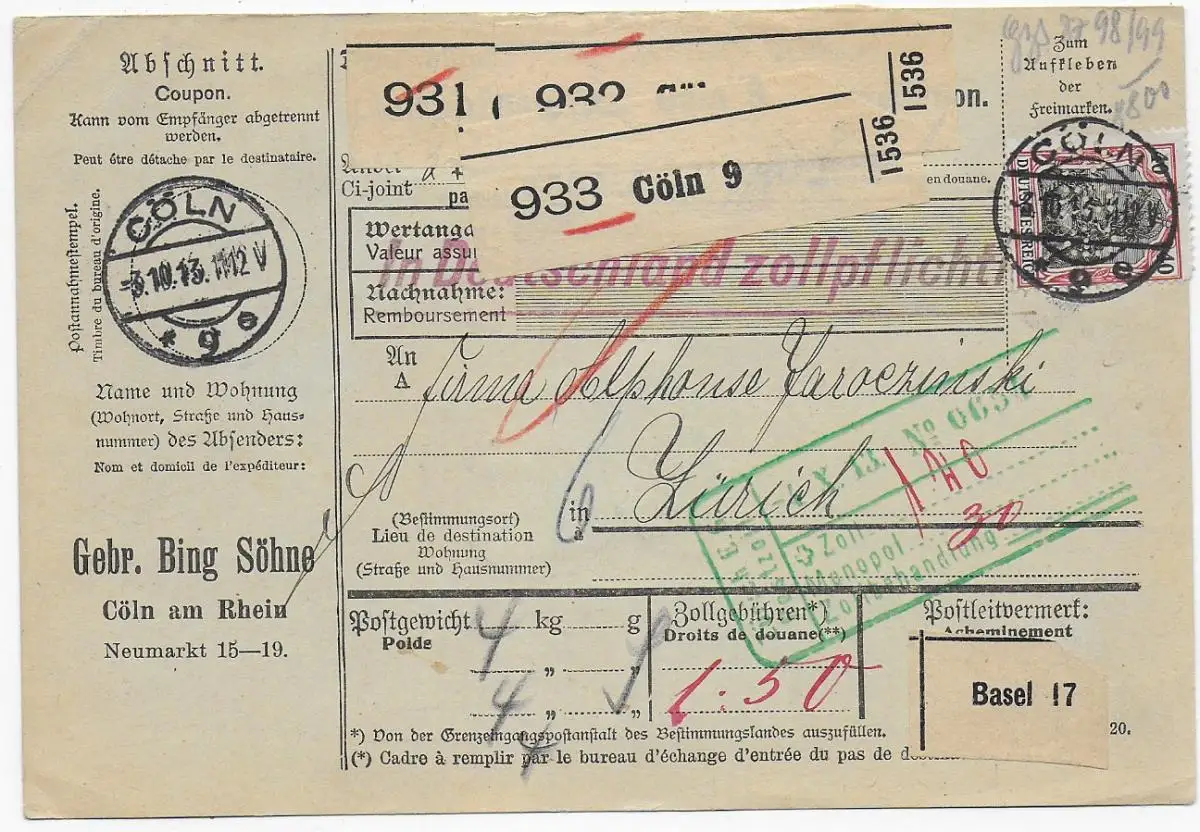 Abschnitt.
Coupon.
Kann vom Empfänger abgetrennt
werden.
Peut être détache par le destinataire.
Postannahmestempel.
Timbre du bureau d'origine.
CÖLN
-3.10.13. 11-12 V
* 9 e
Name und Wohnung
(Wohnort, Straße und Haus-
nummer) des Absenders:
Nom et domicil de l'expéditeur:
Gebr. Bing Söhne
Cöln am Rhein
Neumarkt 15—19.
931
932
1536
933 Cöln 9
1536
on.
Zum
Aufkleben
der
Freimarken.
98/99
Ci-joint
pa
en douane.
Wertanga
Valeur assu
In Deutschland zollpflichti
Nachnahme:
Remboursement
DEUTSCHES REICH
40
40
CÖLN
9 e
An
A
Firma Alphonse Jaroczinski
in
à
Zürich
(Bestimmungsort)
Lieu de destination
Wohnung
(Straße und Hausnummer)
X. 13. No 063
Zoll
Monopol
Zollbehandlung
1 40
30
Postgewicht
Poids
kg
g
4
4
"
"
4
"
"
Zollgebühren*)
Droits de douane(**)
1.50
Postleitvermerk:
Acheminement
Basel 17
20.
*) Von der Grenzeingangspostanstalt des Bestimmungslandes auszufüllen.
(*) Cadre à remplir par le bureau d'échange d'entrée du pas de